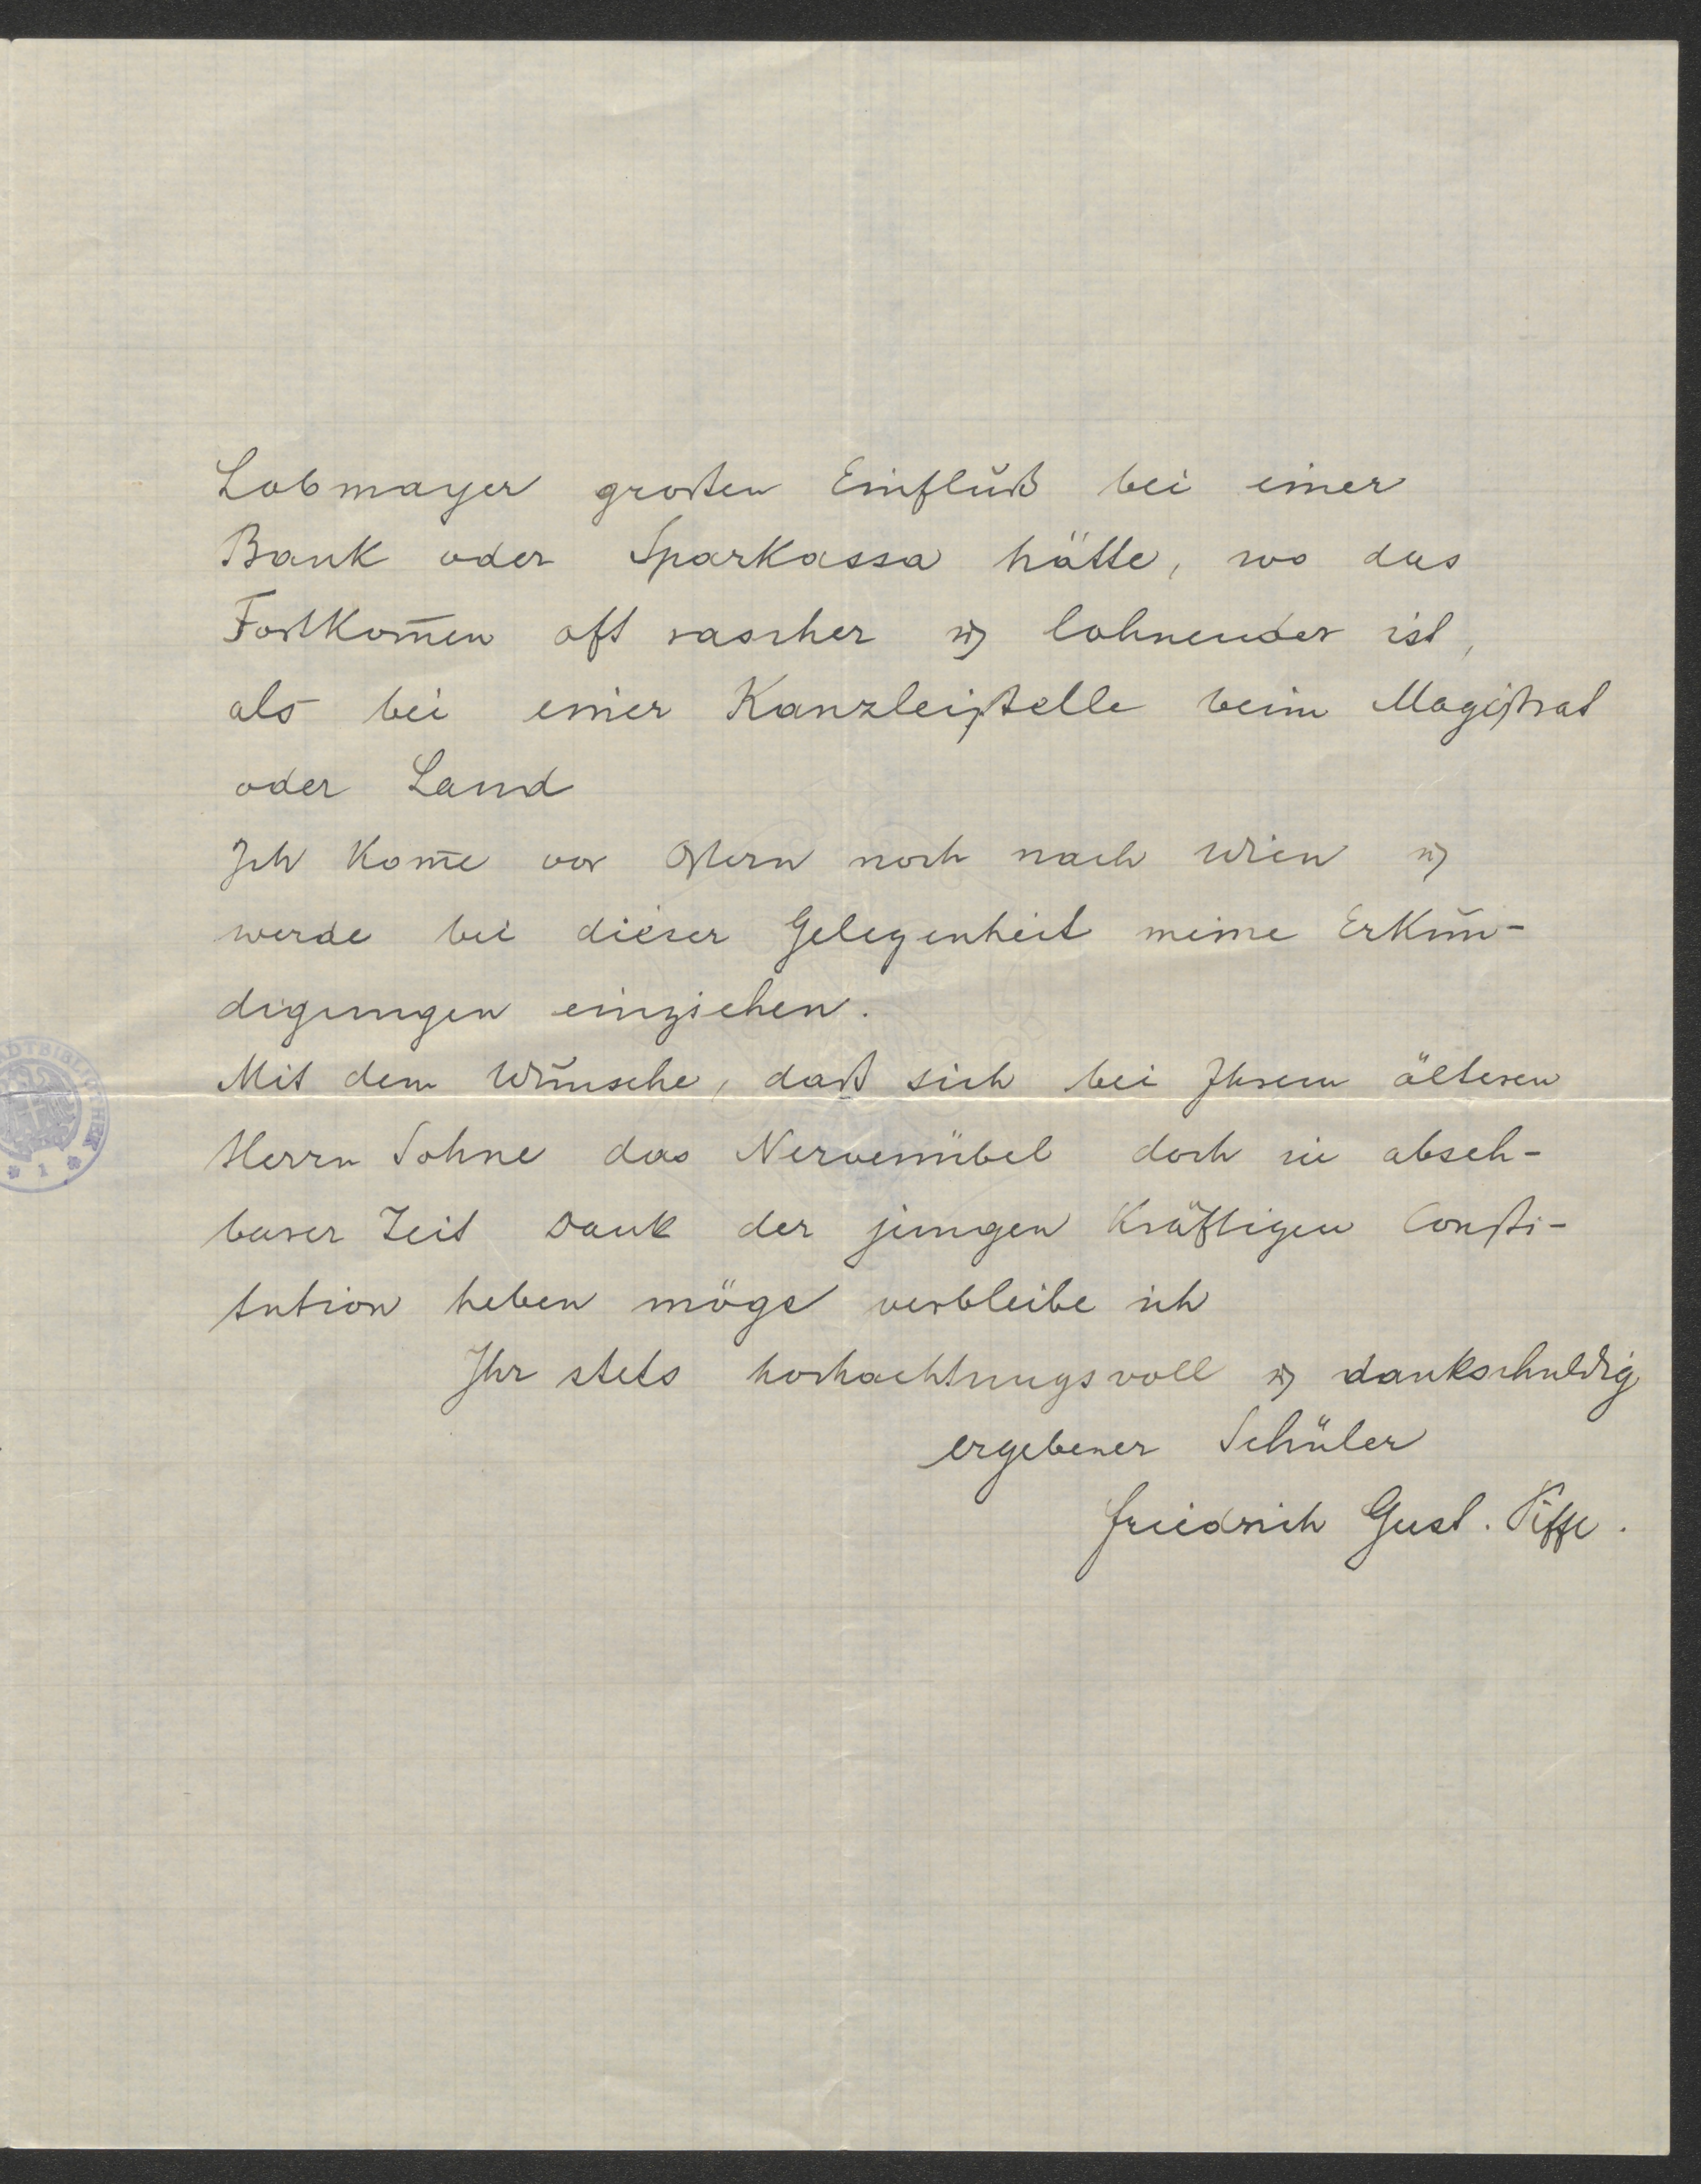 Lobmayer großen Einfluß bei einer
Bank oder Sparkassa hätte, wo das
Fortkom̅en oft rascher u lohnender ist,
als bei einer Kanzleistelle beim Magistrat
oder Land
Ich kom̅e vor Ostern noch nach Wien u
werde bei dieser Gelegenheit meine Erkun-
digungen einziehen.
Mit dem Wunsche, daß sich bei Ihrem älteren
Herrn Sohne das Nervenübel doch in abseh-
barer Zeit Dank der jungen kräftigen Consti-
tution heben möge verbleibe ich
Ihr stets hochachtungsvoll u dankschuldig
ergebener Schüler
Friedrich Gust.
ADTBIBLIOTHEK
* 1 *